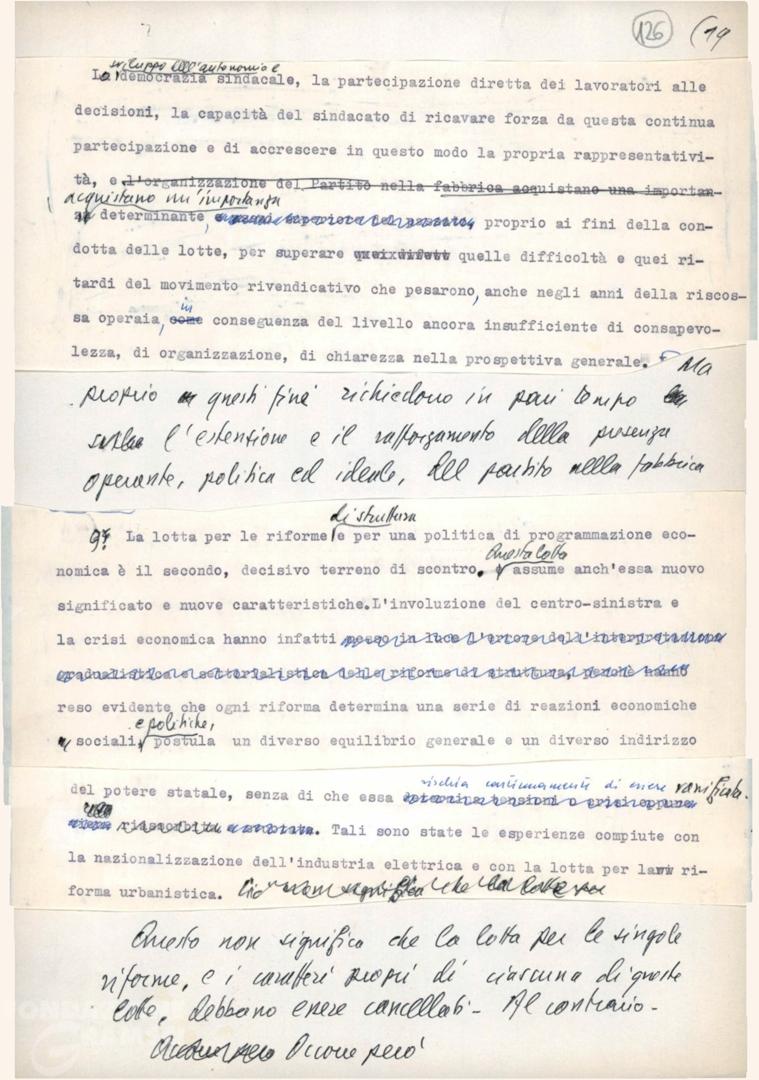 126 (19
sviluppo dell'autonomia e
La democrazia sindacale, la partecipazione diretta dei lavoratori alle
decisioni, la capacità del sindacato di ricavare forza da questa continua
partecipazione e di accrescere in questo modo la propria rappresentativi-
tà, e l'organizzazione del Partito nella fabbrica acquistano una importan-
acquistano un'importanza
determinante, proprio ai fini della con-
dotta delle lotte, per superare quelle difficoltà e quei ri-
tardi del movimento rivendicativo che pesarono, anche negli anni della riscos-
in
sa operaia, come conseguenza del livello ancora insufficiente di consapevo-
lezza, di organizzazione, di chiarezza nella prospettiva generale. Ma
proprio questi fini richiedono in pari tempo
l'estensione e il rafforzamento della presenza
operante, politica ed ideale, del partito nella fabbrica
di struttura
9) La lotta per le riforme e per una politica di programmazione eco-
Questa lotta
nomica è il secondo, decisivo terreno di scontro. assume anch'essa nuovo
significato e nuove caratteristiche. L'involuzione del centro-sinistra e
la crisi economica hanno infatti messo in luce l'errore dell'interpretazione
gradualistica e settorialistica delle riforme di struttura, perchè hanno
reso evidente che ogni riforma determina una serie di reazioni economiche
e politiche,
sociali, postula un diverso equilibrio generale e un diverso indirizzo
rischia continuamente di essere vanificata.
del potere statale, senza di che essa
riassorbita. Tali sono state le esperienze compiute con
la nazionalizzazione dell'industria elettrica e con la lotta per la ri-
forma urbanistica. Ciò non significa che la lotta
Questo non significa che la lotta per le singole
riforme, e i caratteri propri di ciascuna di queste
lotte, debbano essere cancellati - Al contrario -
Occorre però
FONDAZIONE
GRAMSCI